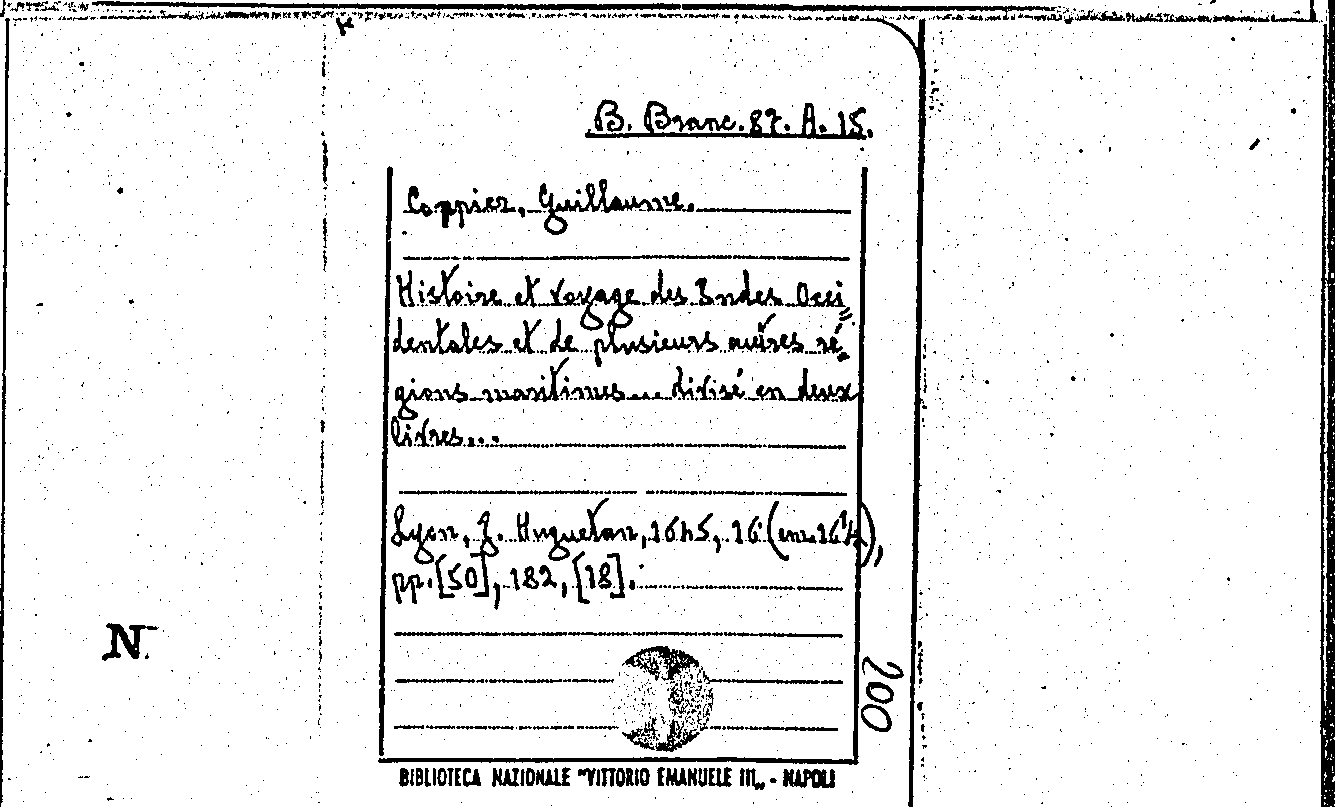 B. Branc. 87. A. 15.
Coppier, Guillaume.
Histoire et voyage des Indes Occi=
dentales et de plusieurs autres ré=
gions maritimes... divisé en deux
livres...
Lyon, J. Huguetan, 1645, 16°
pp. [50], 182, [18].
N
200
BIBLIOTECA NAZIONALE "VITTORIO EMANUELE III„ - NAPOLI